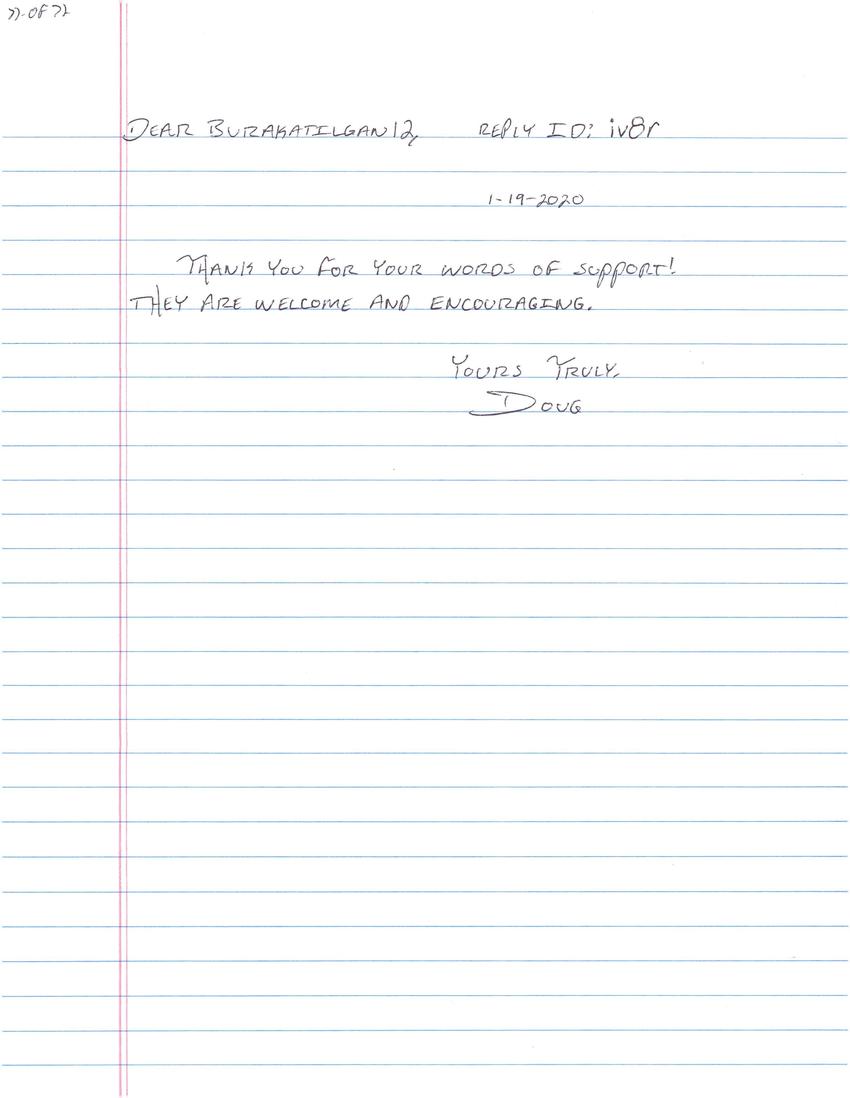 OF
DEAR BURAKATILGAN12, REPLY ID: iv8r
1-19-2020
THANK YOU FOR YOUR WORDS OF SUPPORT!
THEY ARE WELCOME AND ENCOURAGING.
YOURS TRULY,
DOUG